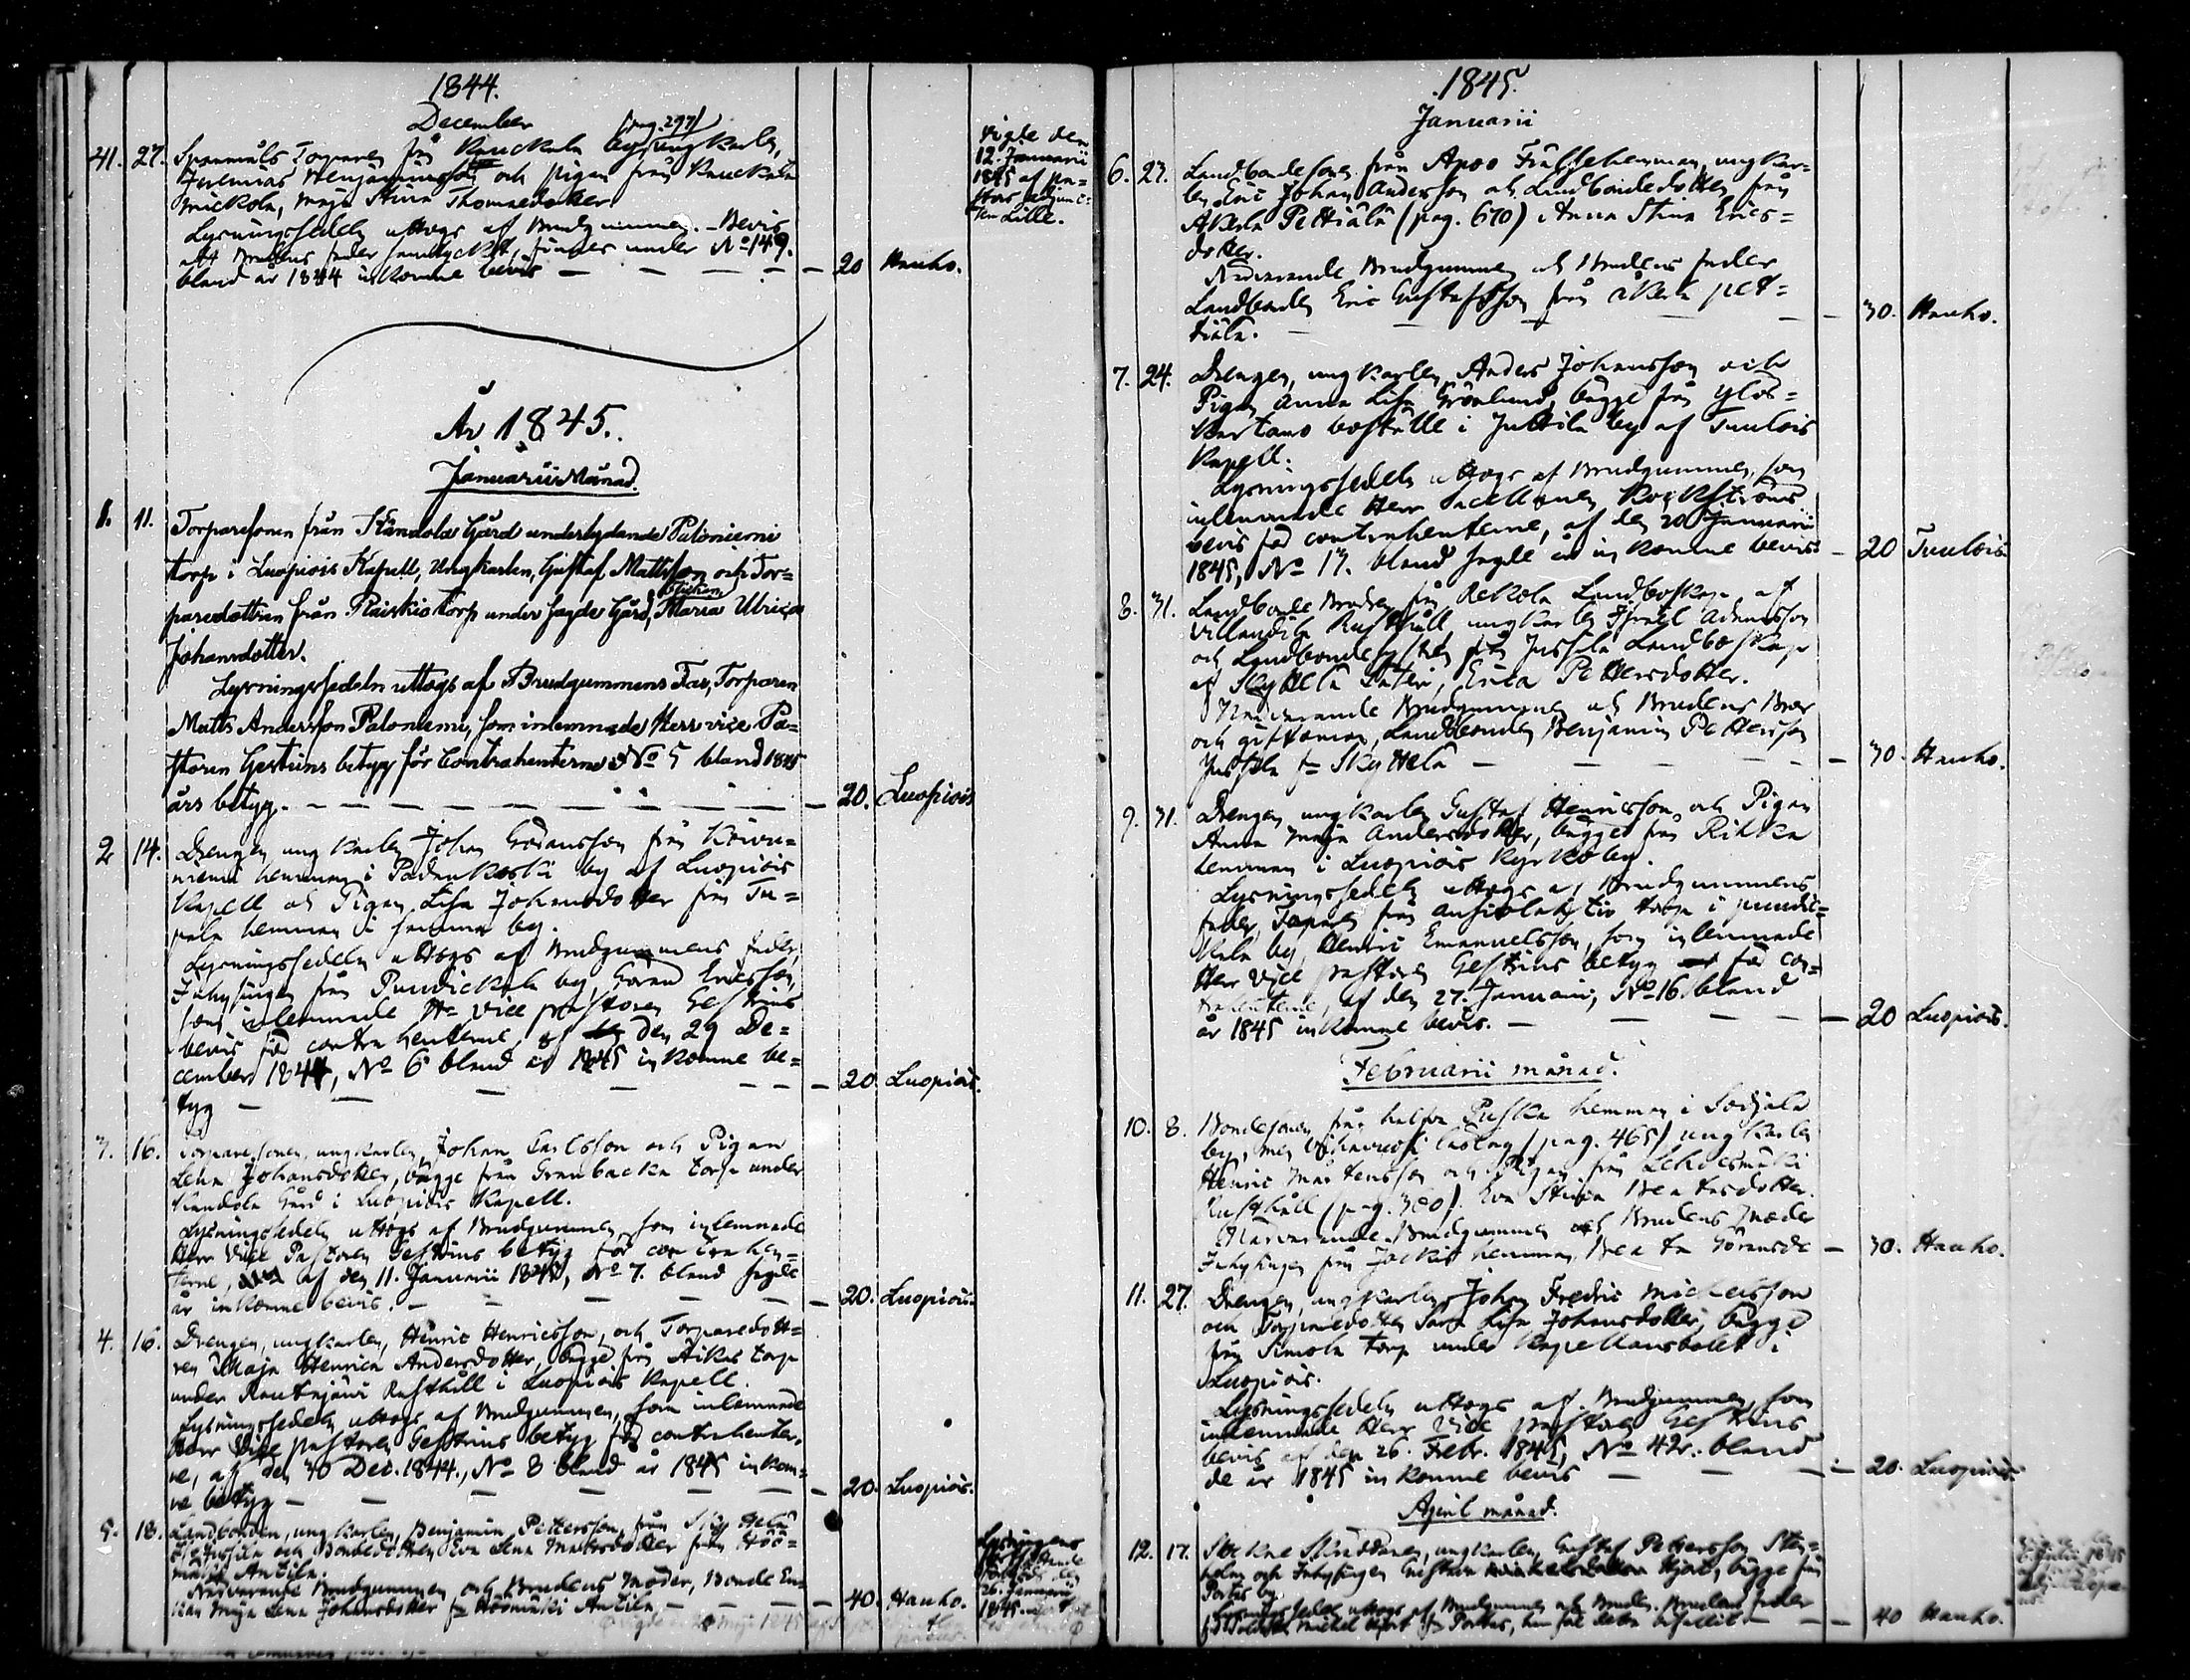 1844.
December
(pag. 297)
41. 27. Spanmåls Torparen från Kauckola by, ungkarlen,
Jeremias Benjaminsson och pigan från Kauckola
Mickola, Maja Stina Thomasdotter
Lysningssedeln uttogs af Brudgummen. Bevis
att Brudens fader samtyckt, finnes under No 149.
bland år 1844 inkomne bevis — — — — — 20 Hauho.
Vigde den
12. Januarii
1845 af pa-
stors adjunc-
ten Lille.
År 1845.
Januarii Månad.
1. 11. Torparesonen från Kandola Gård underlydande Paloniemi
torp i Luopiois Kapell, Ungkarlen, Gustaf Mattsson och Tor=
paredottren från Raiskio torp under sagde Gård, flickan Maria Ulrica
Johansdotter.
Lysningssedeln uttogs af Brudgummens Far, Torparen
Matts Andersson Paloniemi, som inlemnade Herr vice Pa-
storen Gestrins betyg för Contrahenterne No 5 bland 1845
års betyg. — — — — — — — 20. Luopiois
2 14. Drengen, ungkarlen Johan Göransson från Koivu-
niemi hemman i Padankoski by af Luopiois
Kapell och Pigan Lisa Johansdotter från Tu=
pala hemman i samma by.
Lysningssedeln uttogs af Brudgummens fader,
Inhysingen från Puudickala by, Göran Ericsson,
som inlemnade Hr Vice pastoren Gestrins
bevis för contrahenterne, af den 29 De=
cember 1844, No 6 bland år 1845 inkomne be=
tyg — — — — — — — 20 Luopiois.
3. 16. Torparesonen, ungkarlen, Johan Carlsson och Pigan
Lena Johansdotter, bägge från Granbacka torp under
Kandola Gård i Luopiois Kapell.
Lysningssedeln uttogs af Brudgummen, som inlemnade
Herr Vice Pastoren Gestrins betyg för contrahen=
terne, af den 11. Januarii 1845, No 7. bland sagde
år inkomne bevis. — — — — — 20. Luopiois.
4. 16. Drengen, ungkarlen, Henric Henricsson, och Torparedott=
ren Maja Henrica Andersdotter, bägge från Aikas torp
under Rautajärvi Rusthåll i Luopiois Kapell.
Lysningssedeln uttogs af Brudgummen, som inlemnade
Herr Vice pastoren Gestrins betyg för contrahenter,
ne, af den 30 Dec. 1844., No 8 bland år 1845 inkom=
ne betyg — — — — — — 20. Luopiois.
5. 18. Landbonden, ungkarlen, Benjamin Pettersson, från Skyttelä
Jussila och Bondedottren Eva Lena Mattsdotter från Höö=
mäki Anttila.
Närvarande Brudgummen och Brudens Moder, Bonde En=
kan Maja Lena Johansdotter fr Höömäki Anttila — — — 40. Hauho.
Lysningens
26. Januarii
1845
Vigde 20 Maji 1845
1845.
Januarii
6. 23. Landbondesonen från Apoo Frälsehemman, ungkar-
len Eric Johan Andersson och Landbondedottren från
Akerla Pettiälä (pag. 670) Anna Stina Erics=
dotter.
Närvarande Brudgummen och Brudens fader
Landbonden Eric Gustafsson från Akerla Pet=
tiälä. — — — — — 30. Hauho.
7. 24. Drengen, ungkarlen Anders Johansson och
Pigan Anna Lisa Grönlund, bägge från Ylös=
kartano boställe i Juttila by af Tuulois
Kapell.
Lysningssedeln uttogs af Brudgummen, som
inlemnade Herr Sacellanen Bockströms
bevis för contrahenterne, af den 20 Januarii
1845, No 17. bland sagde år inkomne bevis. — 20 Tuulois.
8. 31. Landbonde Brodren från Rekola Landboskap af
Villandila Rusthåll ungkarlen Israel Adamsson
och Landbondesystren från Jussila Landboskap
af Skyttelä Säteri, Erica Pettersdotter.
Närvarande Brudgummen och Brudens Bror
och giftoman, Landbonden Benjamin Pettersson
Jussila fr Skyttelä — — — — 30. Hauho.
9. 31. Drengen, ungkarlen Gustaf Henricsson och Pigan
Anna Maja Andersdotter, bägge från Rihka
hemman i Luopiois Kyrkoby.
Lysningssedeln uttogs af Brudgummens
fader, Torparen från torp i Puudic-
kala by, Henric Emanuelsson, som inlemnade
Herr Vice pastoren Gestrins betyg för con=
trahenterne, af den 27. Januarii, No 16. bland
år 1845 inkomne bevis. — — — — 20 Luopiois.
Februarii månad.
10. 8. Bondesonen från halfva Puska hemman i Sotjala
by, (pag. 465) ungkarlen
Henric Mårtensson och Pigan från Lehdesmäki
Rusthåll (pag. 380). Eva Stina Beatasdotter.
Närvarande Brudgummen och Brudens Moder
Inhysingen från hemman, Beata Göransdr — 30. Hauho.
11. 27. Drengen, ungkarlen Johan Fredric Michelsson
och Torparedottren Sara Lisa Johansdotter, bägge
från Simola torp under Kapellansbolet i
Luopiois.
Lysningssedeln uttogs af Brudgummen, som
inlemnade Herr Vice pastoren Gestrins
bevis af den 26. Febr. 1845, No 42. bland
de år 1845 inkomne bevis — — — 20. Luopiois
April månad.
12. 17. Sockne Skräddaren, ungkarlen, Gustaf Pettersson Sten=
holm och Inhysingen Gustava Hjort, bägge från
Portas by.
Lysningssedeln uttogs af Brudgummen och Bruden. Brudens fader
Michel Hjort fr Portas, — — 40 Hauho.